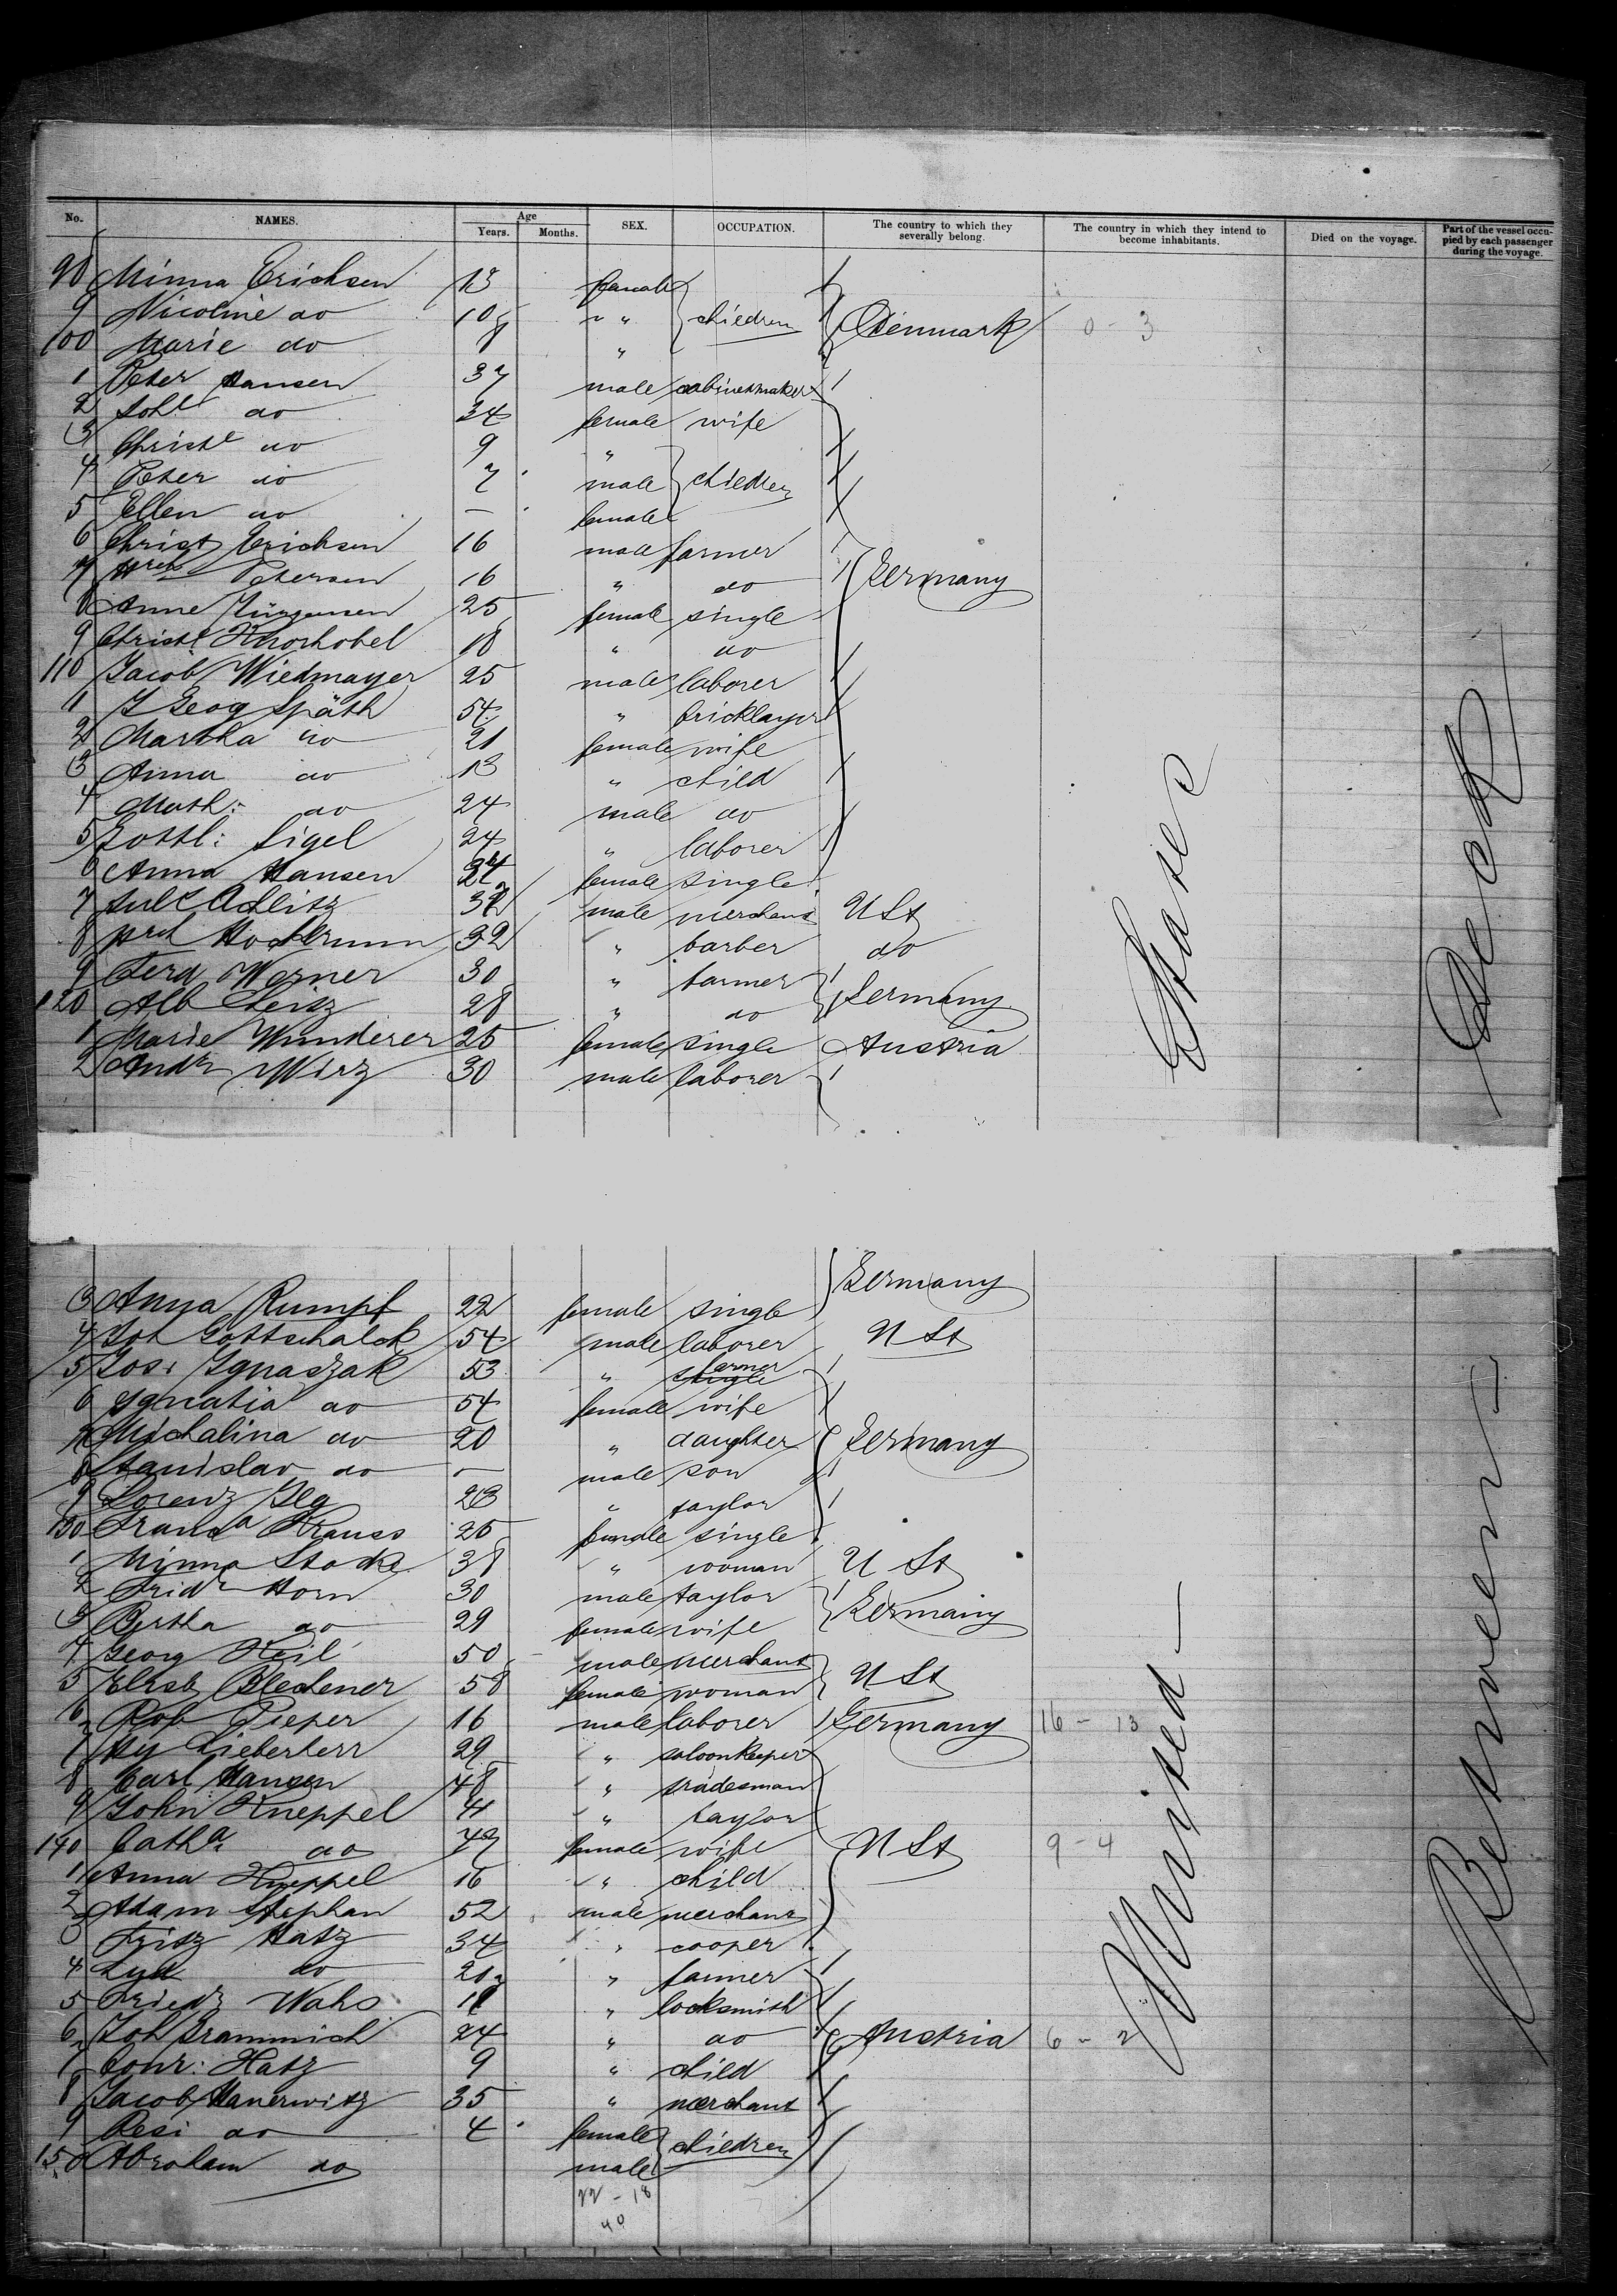 No. NAMES. Age Years. Months. SEX. OCCUPATION. The country to which they severally belong. The country in which they intend to become inhabitants. Died on the voyage. Part of the vessel occupied by each passenger during the voyage.
98 Minna Erichsen 13 female
9 Nicoline do 10 " " children Denmark 0 - 3
100 Marie do 8 "
1 Peter Hansen 37 male cabinetmaker
2 do 34 female wife
3 Christe do 9 "
4 Peter do 7 male children
5 Ellen do — female
6 Christ Erichsen 16 male farmer
7 Petersen 16 " do Germany
8 Anne Jürgensen 25 female single
9 Christe Knorhobel 18 " do
110 Jacob Wiedmayer 25 male laborer
1 J Georg Späth 54 " bricklayer
2 Martha do 21 female wife
3 Anna do 13 " child
4 Math: do 24 male do
5 Gottl: Sigel 24 " laborer
6 Anna Hansen female single
7 male merchant U St
8 32 " barber do
9 Ferd Werner 30 " farmer
120 Alb Leitz 28 " do Germany
1 Marie Wunderer 25 female single Austria
2 Andr Wirz 30 male laborer
States
Deck
3 Anna Rumpf 22 female single Germany
4 Joh Gottschalck 54 male laborer U St
5 Jos: Ignaszak 53 " farmer
6 Ignatia do 54 female wife
7 Michalina do 20 " daughter Germany
8 Stanislav do — male son
9 Lorenz Ilg 23 " taylor
130 Franca Krauss 25 female single
1 Minna Stocke 38 " woman U St
2 Fridr Horn 30 male taylor
3 Bertha do 29 female wife Germany
4 Georg Keil 50 male merchant
5 Elisb Blechener 58 female woman U St
6 Rob Pieper 16 male laborer Germany 16 - 13
7 Hy Lieberherr 29 " saloonkeeper
8 Carl Hansen 48 " tradesman
9 John Kneppel " taylor
140 Catha do female wife U St 9 - 4
1 Anna Kneppel 16 " child
2 Adam Stephan 52 male merchant
3 Fritz Hatz 34 " cooper
4 do " farmer
5 Friedr Wahs " locksmith
6 Joh Brammich 24 " do Austria 6 - 2
7 Conr: Hatz 9 " child
8 Jacob Hanerwitz 35 " merchant
9 Resi do 4 female children
150 Abraham do male
22 - 18
40
United
Between